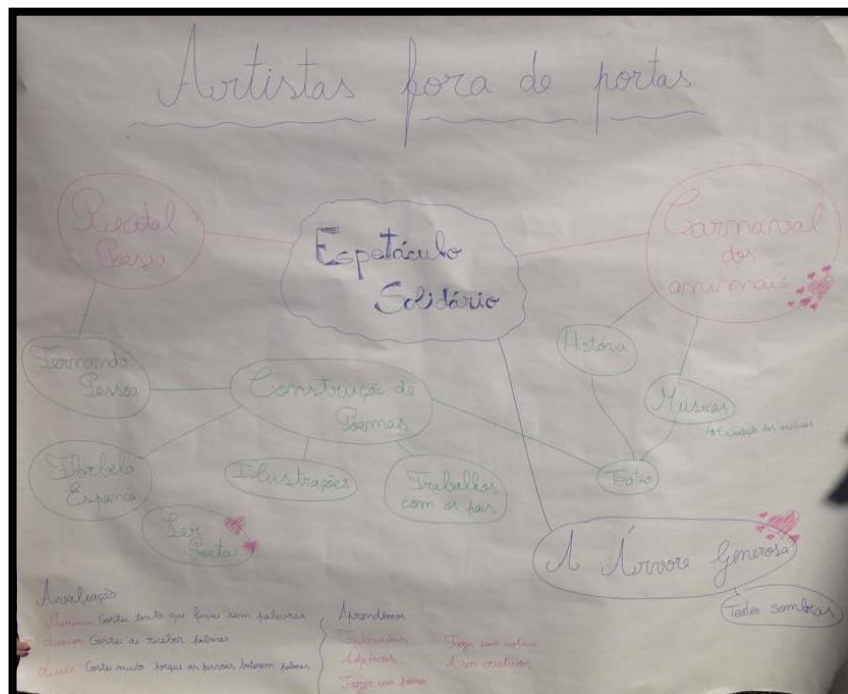 Artistas fora de portas
Recital
Poesia
Espetáculo
Solidário
Carnaval
dos
animais
Fernando
Pessoa
Construção de
Poemas
História
Músicas
Exploração das músicas
Florbela
Espanca
Ilustrações
Trabalhos
com os pais
Teatro
Ser
Poeta
A Árvore Generosa
Teatro sombras
Avaliação
Gostei tanto que fiquei sem palavras
Gostei de receber palmas
Luís Gostei muito porque as pessoas bateram palmas
Aprendemos
Adjetivos
Fazer um poema
A ser criativos